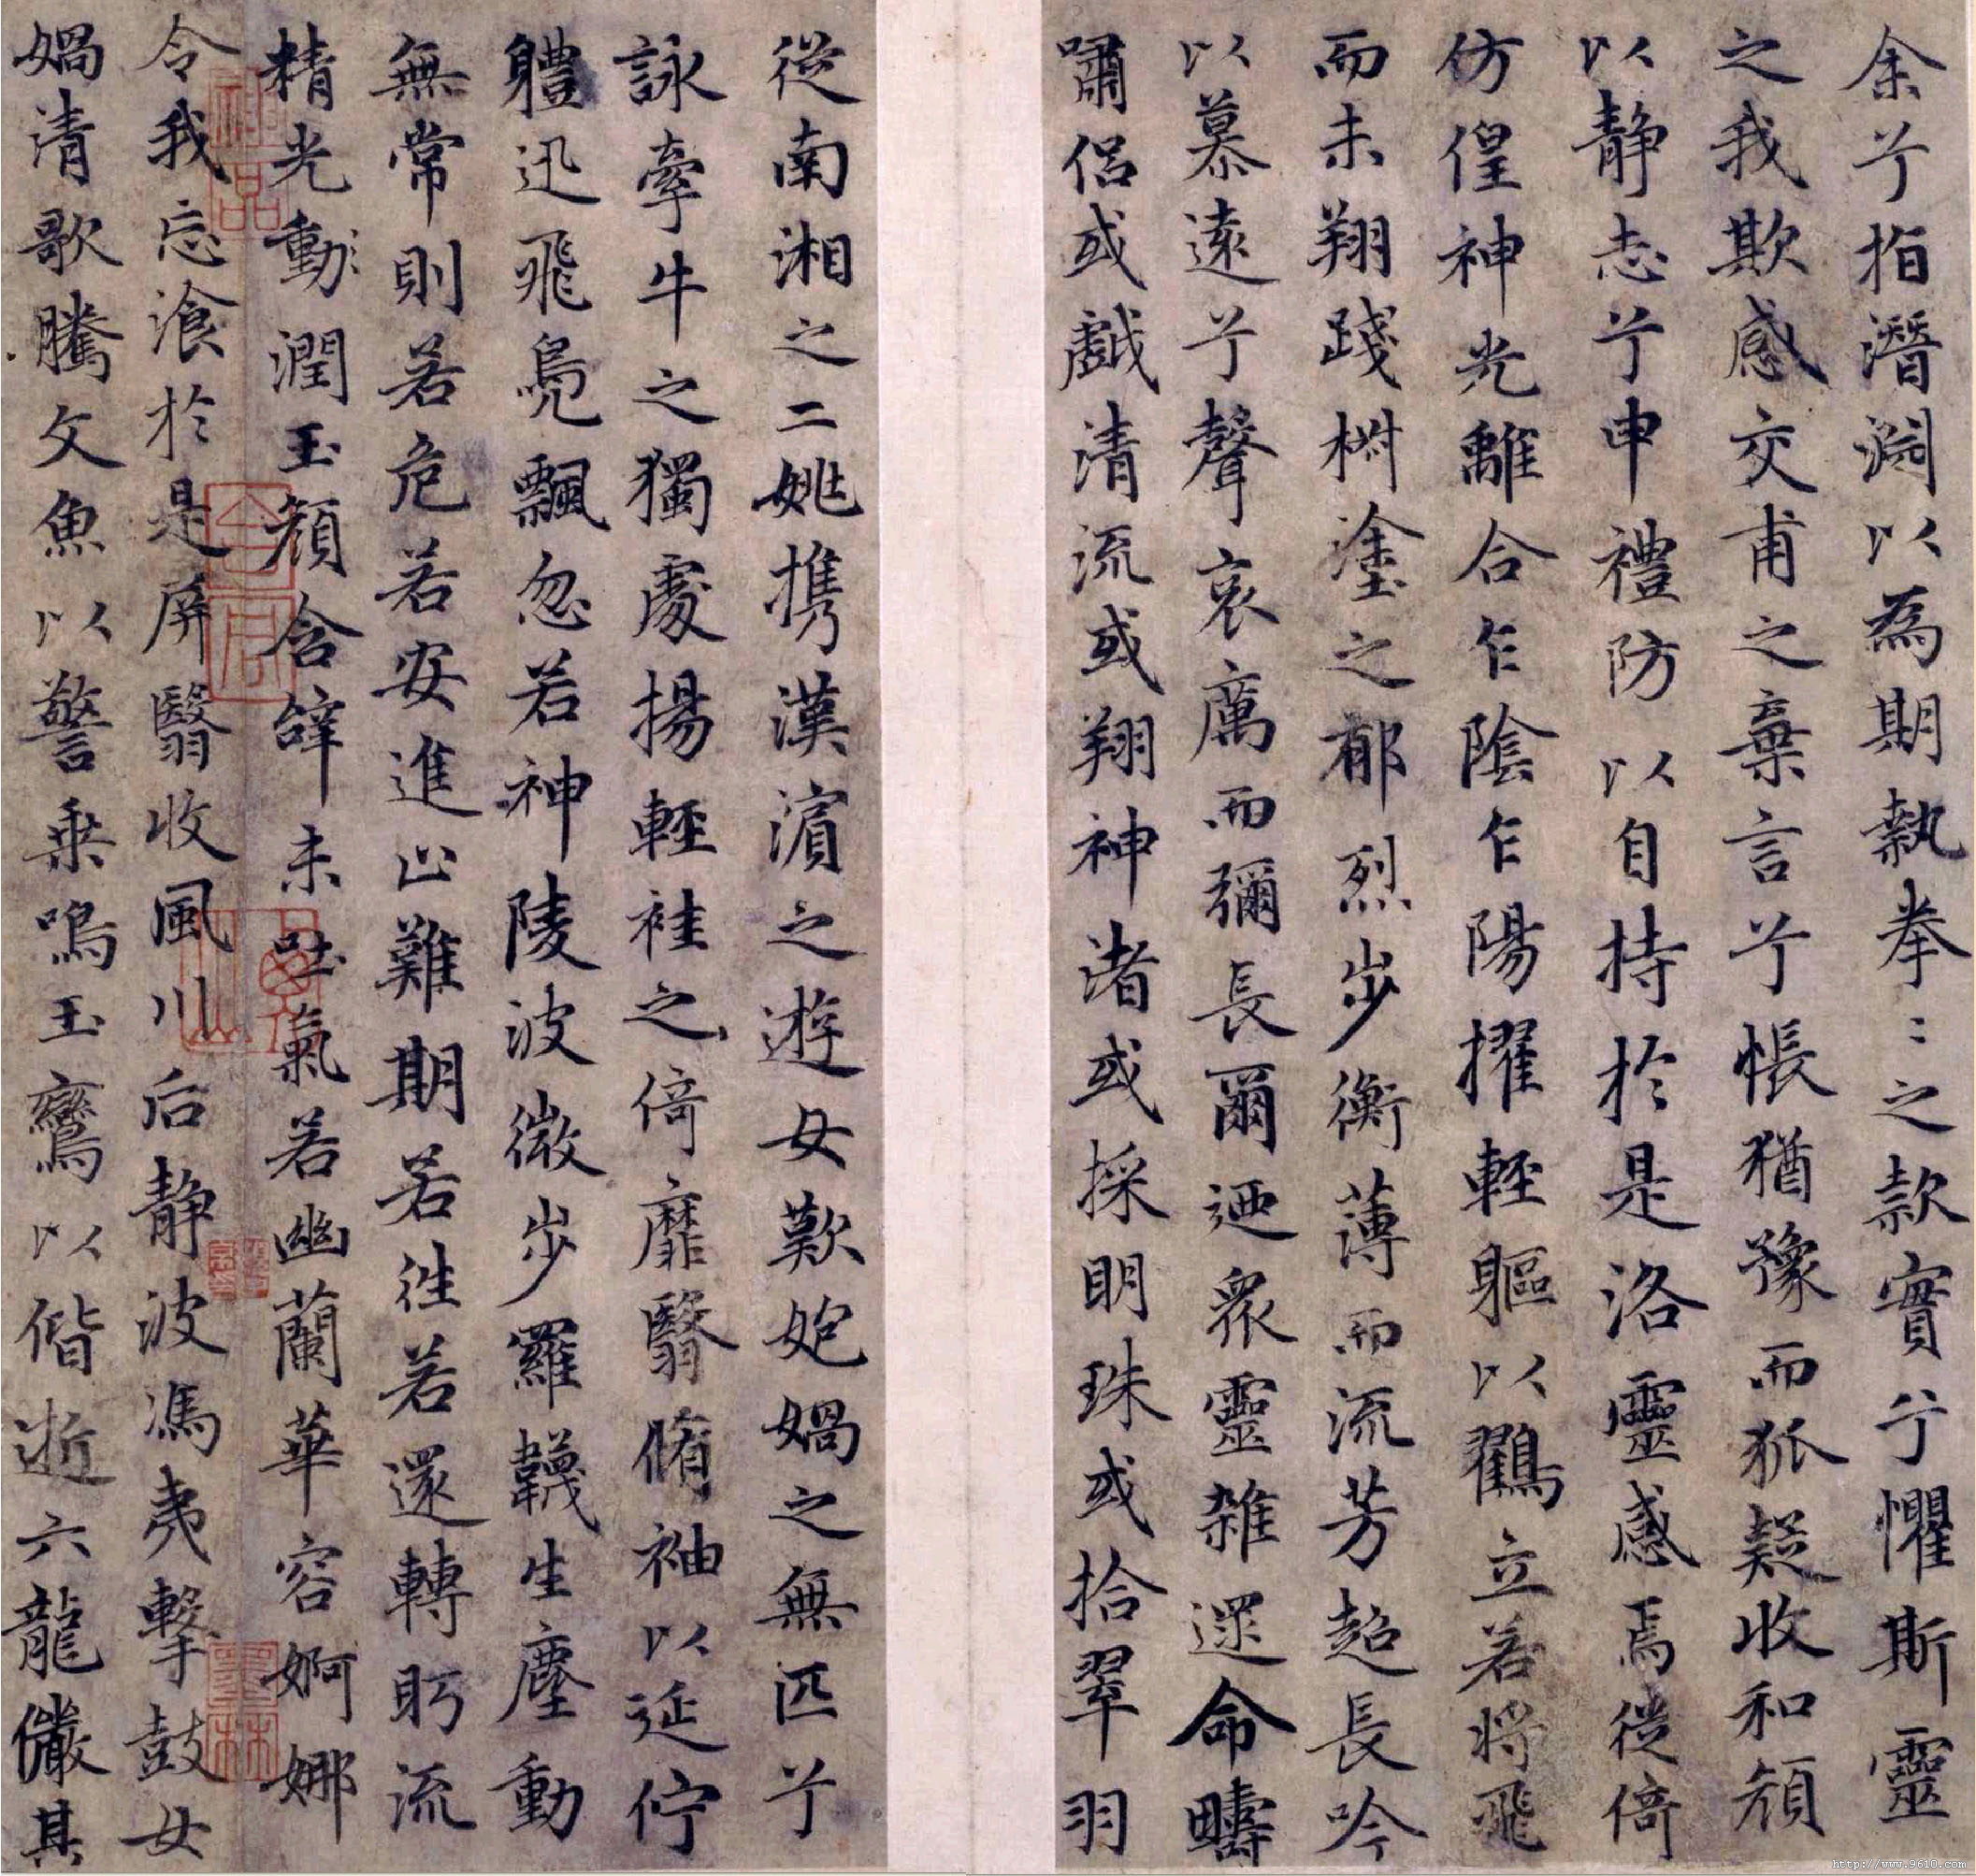 余兮指潛淵以為期執拳〻之款實兮懼斯靈
之我欺感交甫之棄言兮悵猶豫而狐疑收和顏
以静志兮申禮防以自持於是洛靈感焉徙倚
仿偟神光離合乍陰乍陽擢輕軀以鶴立若將飛
而未翔踐椒塗之郁烈步衡薄而流芳超長吟
以慕遠兮聲哀厲而彌長爾迺衆靈雜遝命疇
嘯侶或戲清流或翔神渚或採明珠或拾翠羽
從南湘之二姚攜漢濱之遊女歎匏媧之無匹兮
詠牽牛之獨處揚輕袿之倚靡翳脩袖以延佇
軆迅飛鳧飄忽若神陵波微步羅韈生塵動
無常則若危若安進止難期若往若還轉眄流
精光動潤玉顏含辭未吐氣若幽蘭華容婀娜
令我忘飡於是屏翳收風川后静波馮夷擊鼓女
媧清歌騰文魚以警乗鳴玉鸞以偕逝六龍儼其
http://www.9610.com